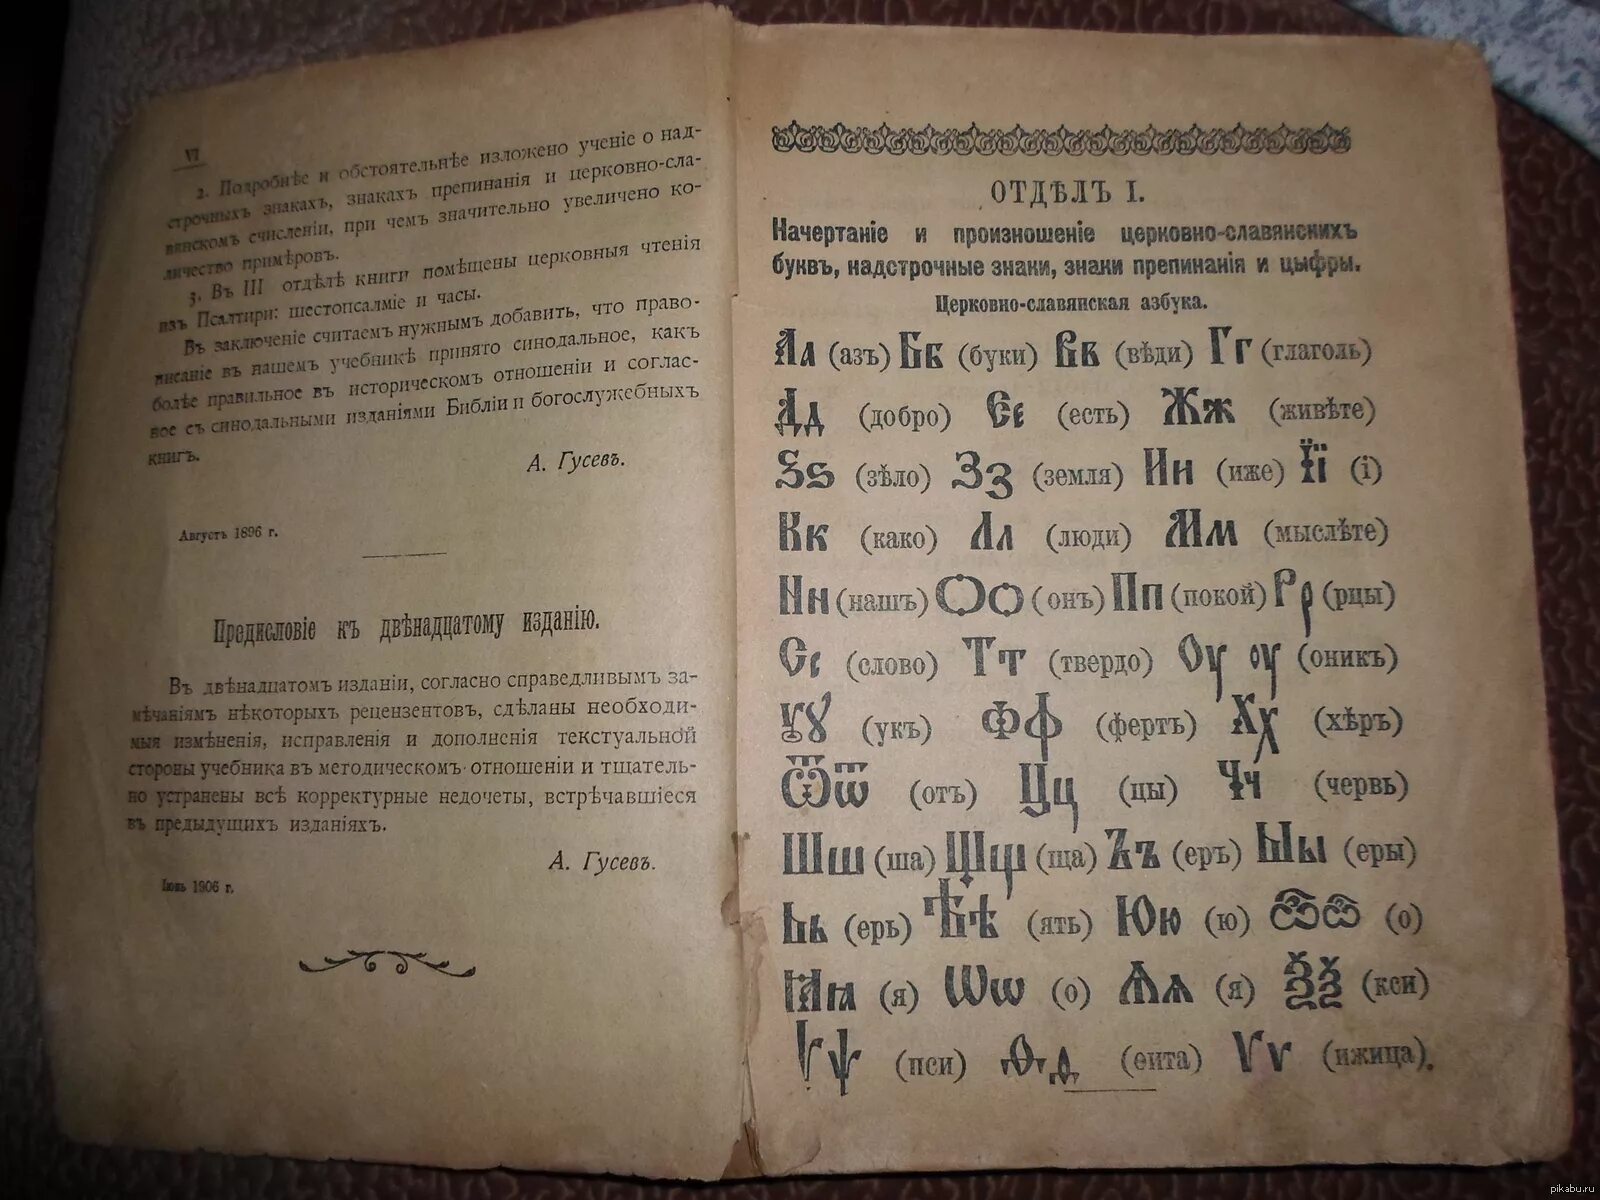 VI
2. Подробнѣе и обстоятельнѣе изложено ученіе о над-
строчныхъ знакахъ, знакахъ препинанія и церковно-сла-
вянскомъ счисленіи, при чемъ значительно увеличено ко-
личество примѣровъ.
3. Въ III отдѣлѣ книги помѣщены церковныя чтенія
изъ Псалтири: шестопсалміе и часы.
Въ заключеніе считаемъ нужнымъ добавить, что право-
писаніе въ нашемъ учебникѣ принято синодальное, какъ
болѣе правильное въ историческомъ отношеніи и соглас-
ное съ синодальными изданіями Библіи и богослужебныхъ
книгъ.
А. Гусевъ.
Августъ 1896 г.
Предисловіе къ двѣнадцатому изданію.
Въ двѣнадцатомъ изданіи, согласно справедливымъ за-
мѣчаніямъ нѣкоторыхъ рецензентовъ, сдѣланы необходи-
мыя измѣненія, исправленія и дополненія текстуальной
стороны учебника въ методическомъ отношеніи и тщатель-
но устранены всѣ корректурные недочеты, встрѣчавшіеся
въ предыдущихъ изданіяхъ.
А. Гусевъ.
Іюнь 1906 г.
ОТДѢЛЪ I.
Начертаніе и произношеніе церковно-славянскихъ
буквъ, надстрочные знаки, знаки препинанія и цыфры.
Церковно-славянская азбука.
Аа (азъ) Бб (буки) Вв (вѣди) Гг (глаголь)
Дд (добро) Єє (есть) Жж (живѣте)
Ѕѕ (зѣло) Зз (земля) Ии (иже) Її (і)
Кк (како) Лл (люди) Мм (мыслѣте)
Нн (нашъ) Оо (онъ) Пп (покой) Рр (рцы)
Сс (слово) Тт (твердо) Оу оу (оникъ)
Ꙋꙋ (укъ) Фф (фертъ) Хх (хѣръ)
Ѿѿ (отъ) Цц (цы) Чч (червь)
Шш (ша) Щщ (ща) Ъъ (еръ) Ыы (еры)
Ьь (ерь) Ѣѣ (ять) Юю (ю) Ѽѽ (о)
Ꙗꙗ (я) Ѡѡ (о) Ѧѧ (я) Ѯѯ (кси)
Ѱѱ (пси) Ѳѳ (ѳита) Ѵѵ (ижица).
pikabu.ru